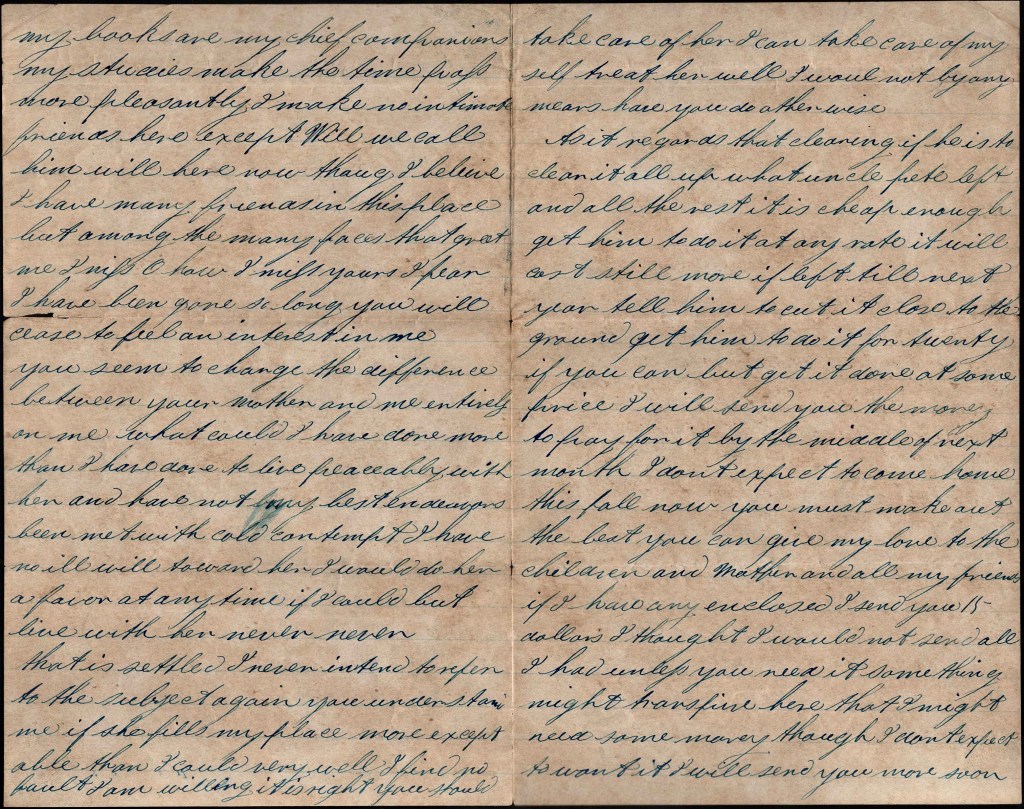 my books are my chief companions
my studies make the time pass
more pleasantly I make no intimate
friends here except Will we call
him will here now thoug I believe
I have many friends in this place
but among the many faces that greet
me I miss O how I miss yours I fear
I have been gone so long you will
cease to feel an interest in me
you seem to change the difference
between your mother and me entirely
on me what could I have done more
than I have done to live peaceably with
her and have not my best endeavors
been met with cold contempt I have
no ill will toward her I would do her
a favor at any time if I could but
live with her never never
that is settled I never intend to refer
to the subject again you understand
me if she fills my place more except
able than I could very well I find no
fault I am willing it is right you should
take care of her I can take care of my
self treat her well I woul not by any
means have you do otherwise
As it regards that clearing if he is to
clean it all up what uncle pete left
and all the rest it is cheap enough
get him to do it at any rate it will
cost still more if left till next
year tell him to cut it close to the
ground get him to do it for twenty
if you can but get it done at some
price I will send you the money
to pay for it by the middle of next
month I dont expect to come home
this fall now you must make out
the best you can give my love to the
children and Mother and all my friends
if I have any enclosed I send you 15
dollars I thought I would not send all
I had unless you need it some thing
might transpire here that I might
need some money though I dont expect
to want it I will send you more soon